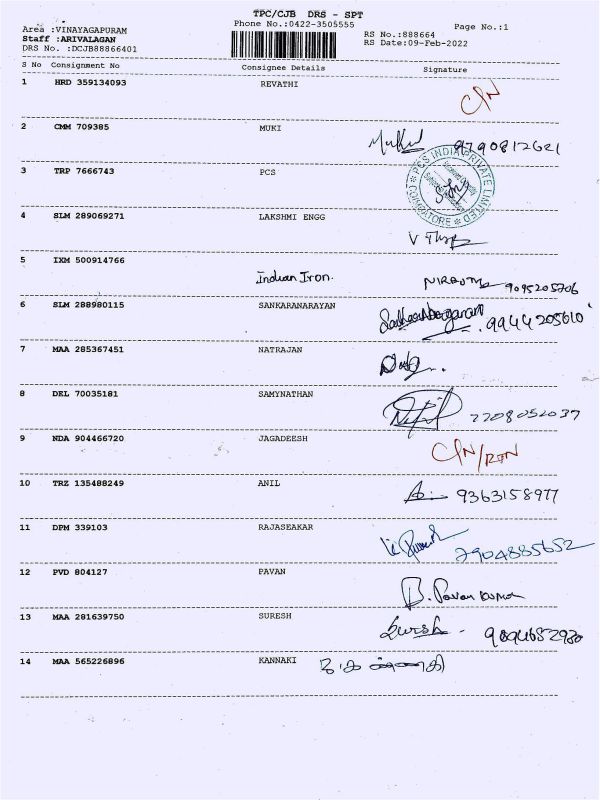 TPC/CJB DRS - SPT
Phone No.:0422-3505555
Page No.:1
Area :VINAYAGAPURAM
Staff :ARIVALAGAN
DRS No. :DCJB88866401
RS No.:888664
RS Date:09-Feb-2022
S No Consignment No Consignee Details Signature
1 HRD 359134093 REVATHI C/N
2 CMM 709385 MUKI 9790812621
3 TRP 7666743 PCS PCS INDIA PRIVATE LIMITED COIMBATORE
4 SLM 289069271 LAKSHMI ENGG
5 IXM 500914766 Indian Iron. 9095205706
6 SLM 288980115 SANKARANARAYAN 9944205610
7 MAA 285367451 NATRAJAN
8 DEL 70035181 SAMYNATHAN
9 NDA 904466720 JAGADEESH C/N/RTN
10 TRZ 135488249 ANIL 9363158977
11 DPM 339103 RAJASEAKAR 7904885652
12 PVD 804127 PAVAN B. Pavan Kumar
13 MAA 281639750 SURESH Suresh - 9894652980
14 MAA 565226896 KANNAKI